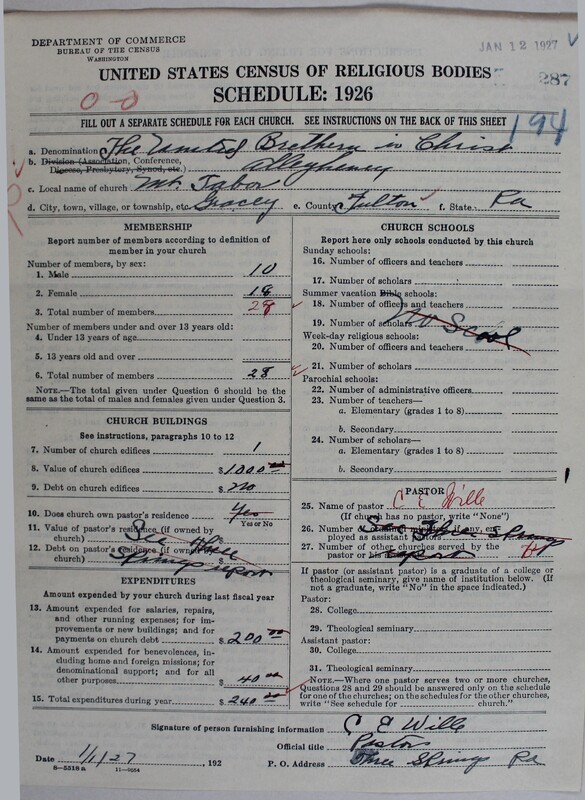 DEPARTMENT OF COMMERCE
BUREAU OF THE CENSUS
WASHINGTON
JAN 12 1927
UNITED STATES CENSUS OF RELIGIOUS BODIES
287
SCHEDULE: 1926
0-0
194
FILL OUT A SEPARATE SCHEDULE FOR EACH CHURCH. SEE INSTRUCTIONS ON THE BACK OF THIS SHEET
a. Denomination The United Brethern in Christ
b. Division (Association, Conference, Diocese, Presbytery, Synod, etc.) Allegheney
c. Local name of church Mt. Tabor
d. City, town, village, or township, etc. Gracey e. County Fulton f. State Pa
MEMBERSHIP
Report number of members according to definition of member in your church
Number of members, by sex:
1. Male 10
2. Female 18
3. Total number of members 28
Number of members under and over 13 years old:
4. Under 13 years of age
5. 13 years old and over
6. Total number of members 28
NOTE.—The total given under Question 6 should be the same as the total of males and females given under Question 3.
CHURCH BUILDINGS
See instructions, paragraphs 10 to 12
7. Number of church edifices 1
8. Value of church edifices $1000 00
9. Debt on church edifices $ no
10. Does church own pastor's residence Yes
Yes or No
11. Value of pastor's residence (if owned by church) See Three
12. Debt on pastor's residence (if owned by church) Springs report
EXPENDITURES
Amount expended by your church during last fiscal year
13. Amount expended for salaries, repairs, and other running expenses; for improvements or new buildings; and for payments on church debt $200 00
14. Amount expended for benevolences, including home and foreign missions; for denominational support; and for all other purposes $40 00
15. Total expenditures during year $240 00
CHURCH SCHOOLS
Report here only schools conducted by this church
Sunday schools:
16. Number of officers and teachers
17. Number of scholars
Summer vacation Bible schools:
18. Number of officers and teachers
19. Number of scholars No Scool
Week-day religious schools:
20. Number of officers and teachers
21. Number of scholars
Parochial schools:
22. Number of administrative officers
23. Number of teachers—
a. Elementary (grades 1 to 8)
b. Secondary
24. Number of scholars—
a. Elementary (grades 1 to 8)
b. Secondary
PASTOR
25. Name of pastor C E Wille
(If church has no pastor, write "None")
26. Number of ministers, if any, employed as assistant pastors See Three Springs
27. Number of other churches served by the pastor or his report 4
If pastor (or assistant pastor) is a graduate of a college or theological seminary, give name of institution below. (If not a graduate, write "No" in the space indicated.)
Pastor:
28. College
29. Theological seminary
Assistant pastor:
30. College
31. Theological seminary
NOTE.—Where one pastor serves two or more churches, Questions 28 and 29 should be answered only on the schedule for one of the churches; on the schedules for the other churches, write "See schedule for church."
Signature of person furnishing information C E Wille
Official title Pastor
Date 1/1/27, 192 P. O. Address Three Springs Pa
8-5518a 11-9264